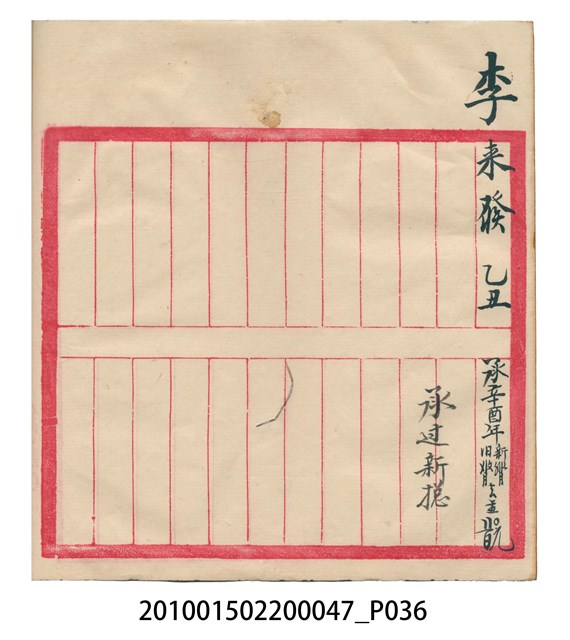 李来發 乙丑
承辛酉年新
旧
承过新揔
201001502200047_P036